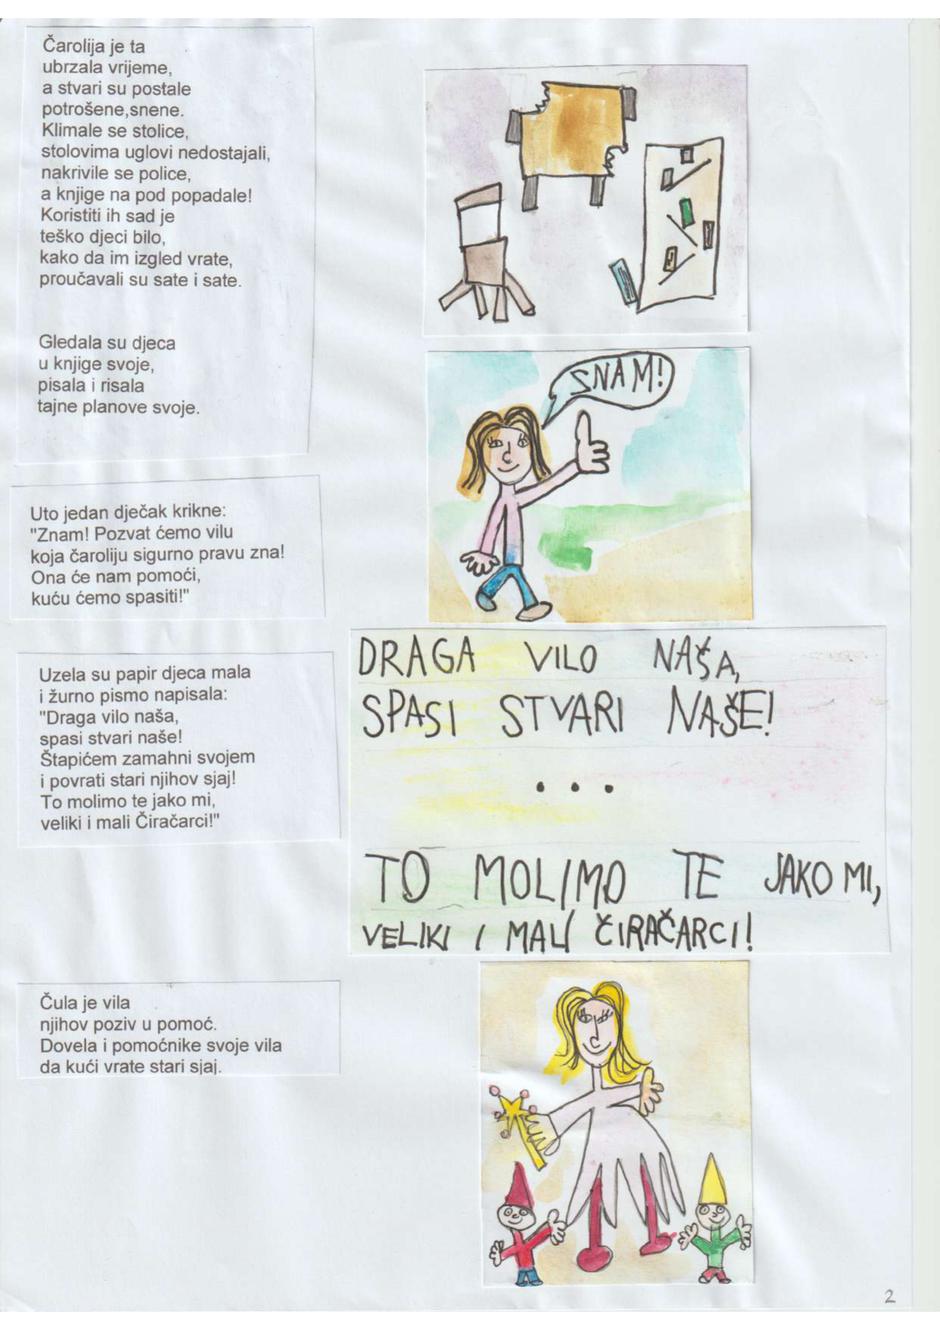 Čarolija je ta
ubrzala vrijeme,
a stvari su postale
potrošene,snene.
Klimale se stolice,
stolovima uglovi nedostajali,
nakrivile se police,
a knjige na pod popadale!
Koristiti ih sad je
teško djeci bilo,
kako da im izgled vrate,
proučavali su sate i sate.
Gledala su djeca
u knjige svoje,
pisala i risala
tajne planove svoje.
ZNAM!
Uto jedan dječak krikne:
"Znam! Pozvat ćemo vilu
koja čaroliju sigurno pravu zna!
Ona će nam pomoći,
kuću ćemo spasiti!"
Uzela su papir djeca mala
i žurno pismo napisala:
"Draga vilo naša,
spasi stvari naše!
Štapićem zamahni svojem
i povrati stari njihov sjaj!
To molimo te jako mi,
veliki i mali Čiračarci!"
DRAGA VILO NAŠA,
SPASI STVARI NAŠE!
...
TO MOLIMO TE JAKO MI,
VELIKI I MALI ČIRAČARCI!
Čula je vila
njihov poziv u pomoć.
Dovela i pomoćnike svoje vila
da kući vrate stari sjaj.
2